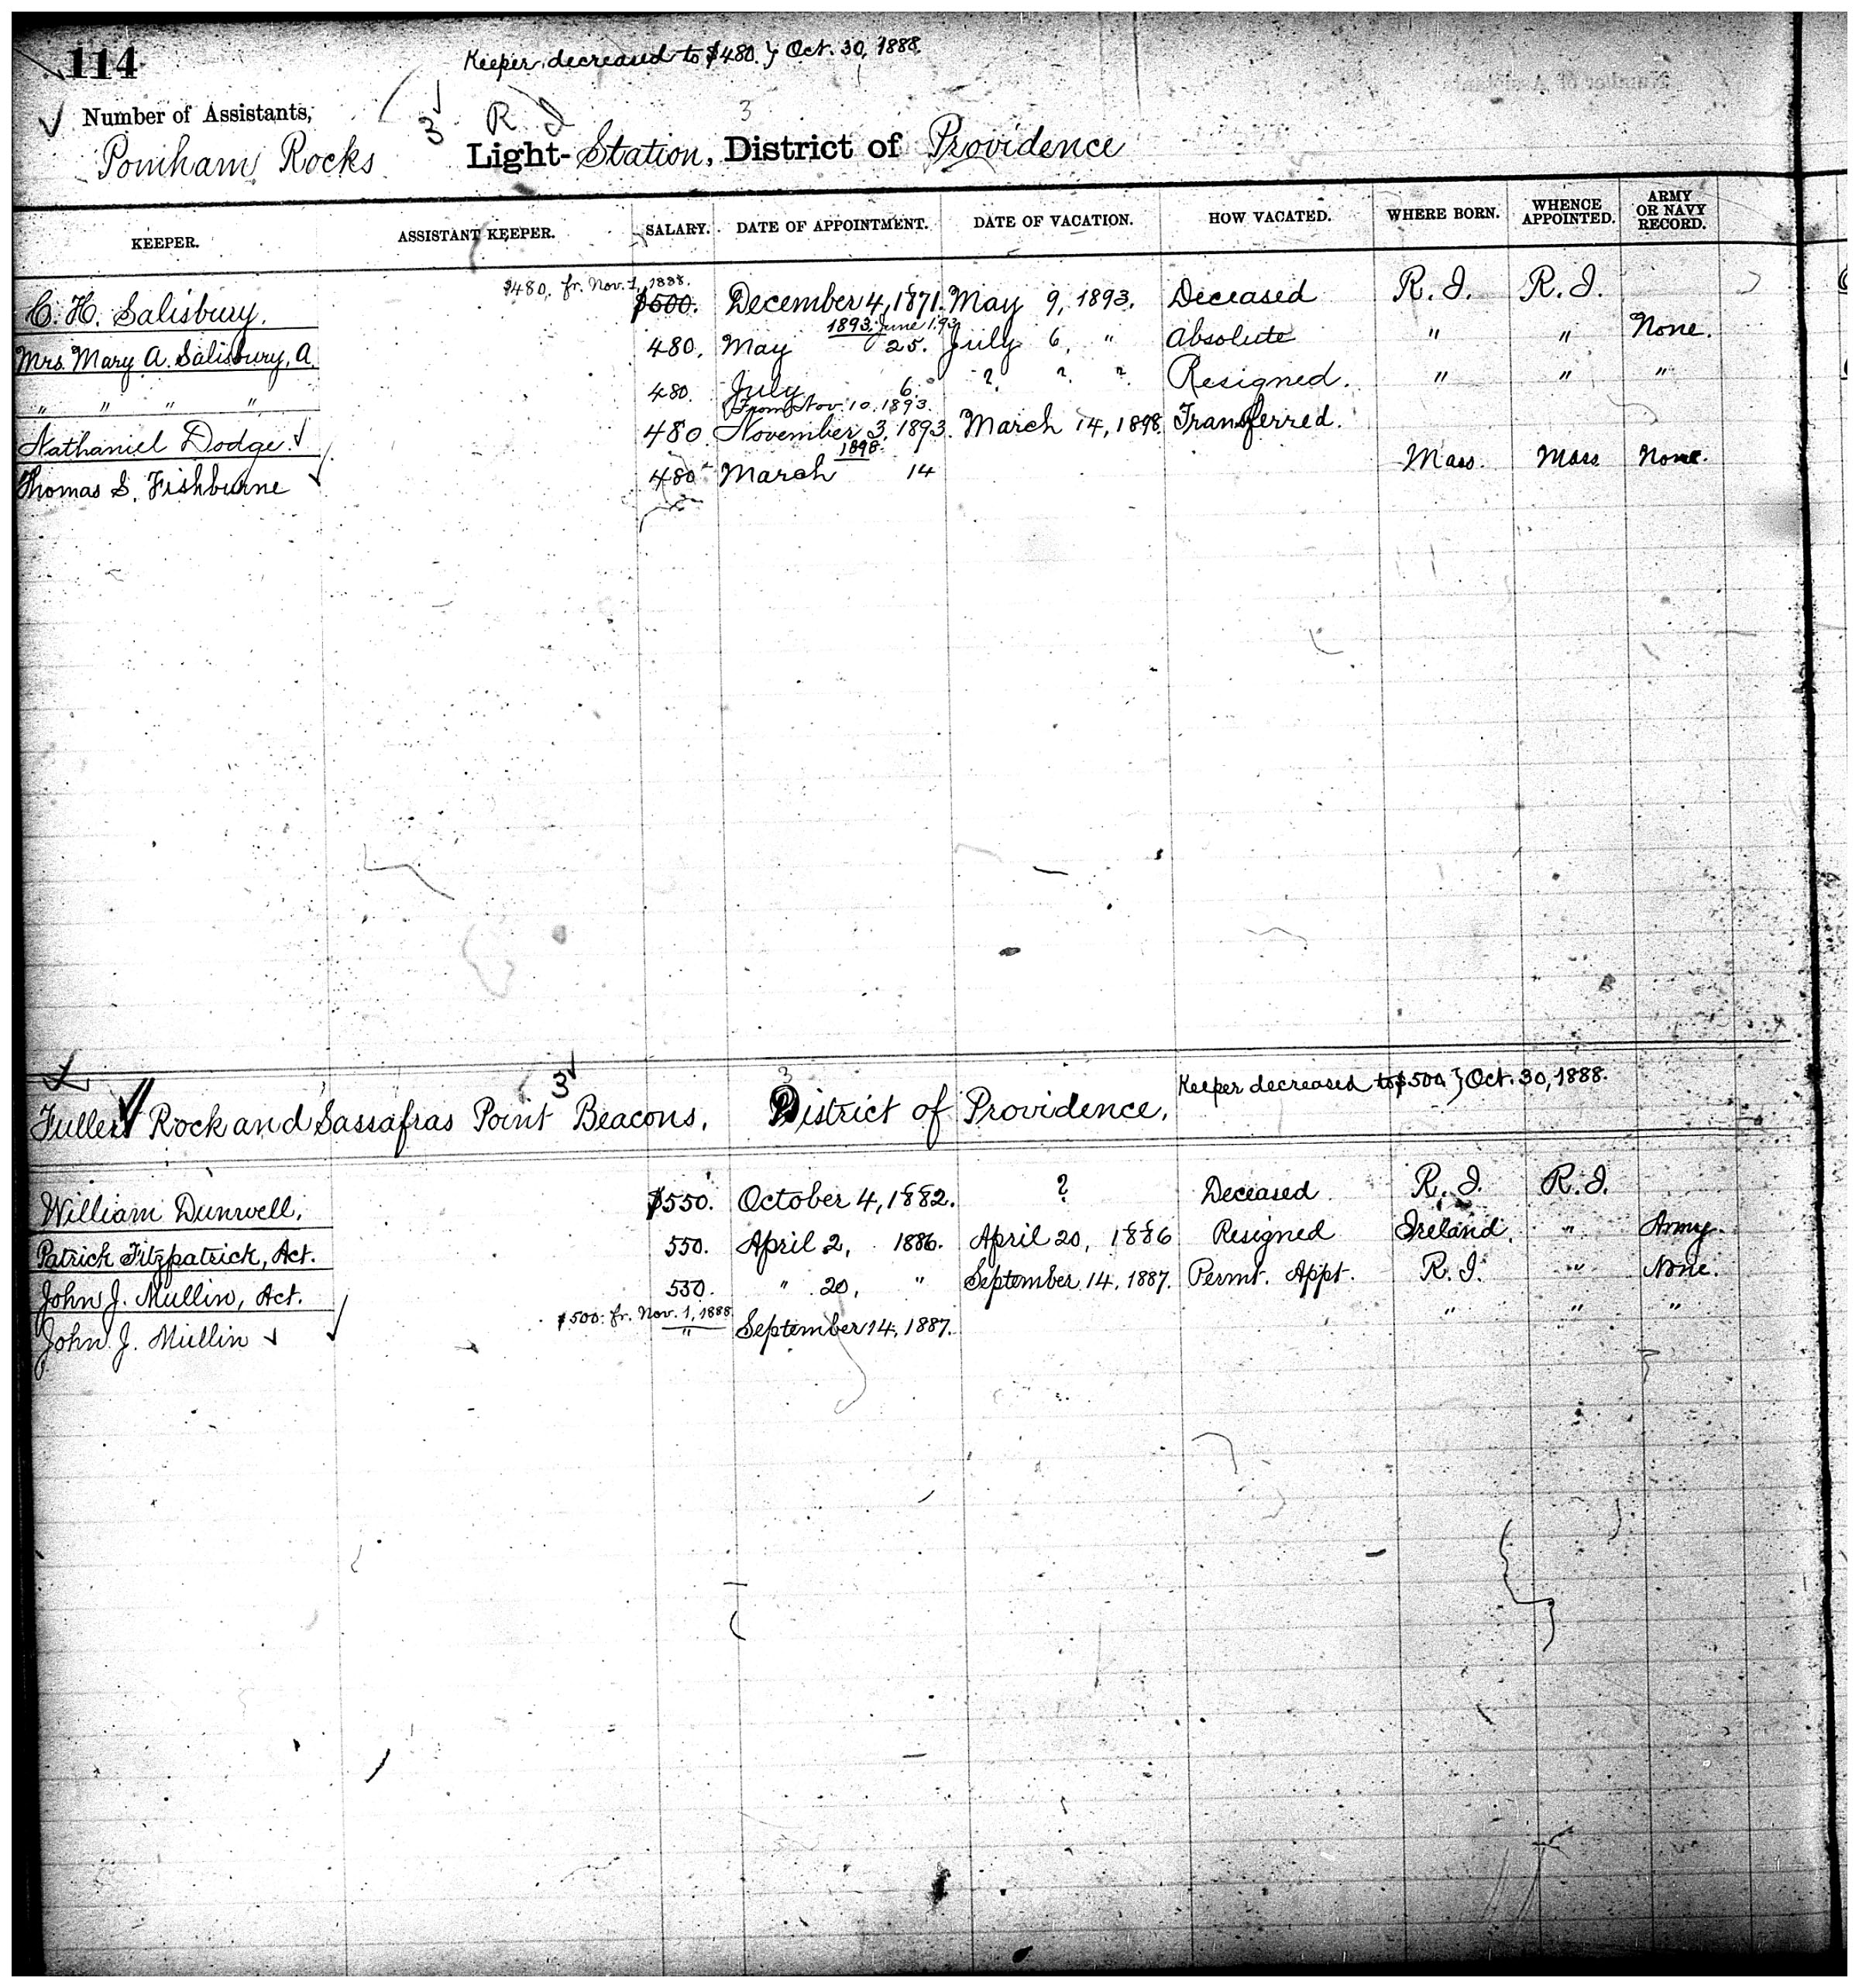 114
Keeper decreased to $480 } Oct. 30, 1888.
Number of Assistants,
3 R. I. 3
Pomham Rocks Light-Station, District of Providence
KEEPER. ASSISTANT KEEPER. SALARY. DATE OF APPOINTMENT. DATE OF VACATION. HOW VACATED. WHERE BORN. WHENCE APPOINTED. ARMY OR NAVY RECORD.
$480. fr. Nov. 1, 1888.
C. H. Salisbury. $500. December 4, 1871. May 9, 1893. Deceased R. I. R. I.
1893. June 1. 93
Mrs. Mary A. Salisbury, A. 480. May 25. July 6, " Absolute " " None.
" " " " 480. July 6. ? ? ? Resigned. " " "
From Nov. 10. 1893.
Nathaniel Dodge. 480. November 3, 1893. March 14, 1898. Transferred.
1898.
Thomas S. Fishburne 480 March 14 Mass. Mass None.
3 3 Keeper decreased to $500 } Oct. 30, 1888.
Fuller Rock and Sassafras Point Beacons. District of Providence.
William Dunwell. $550. October 4, 1882. ? Deceased R. I. R. I.
Patrick Fitzpatrick, Act. 550. April 2, 1886. April 20, 1886 Resigned Ireland. " Army.
John J. Mullin, Act. 550. " 20, " September 14, 1887. Permt. Appt. R. I. " None.
$500. fr. Nov. 1, 1888.
John J. Mullin " September 14, 1887. " " "